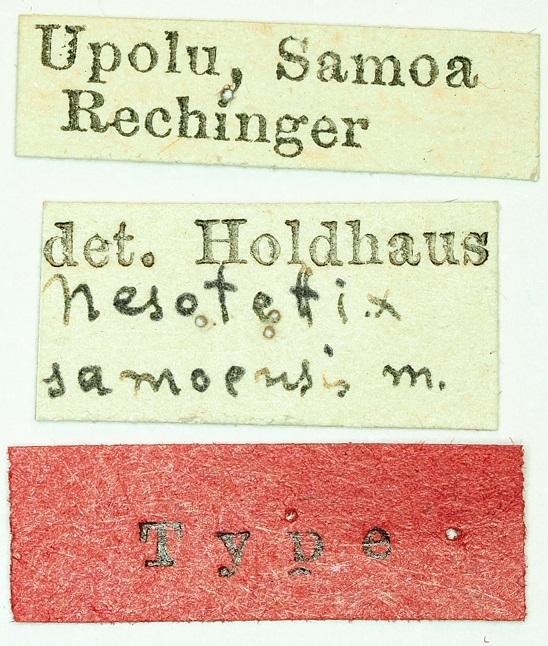 Upolu, Samoa
Rechinger
det. Holdhaus
Nesotetix
samoensis m.
Type